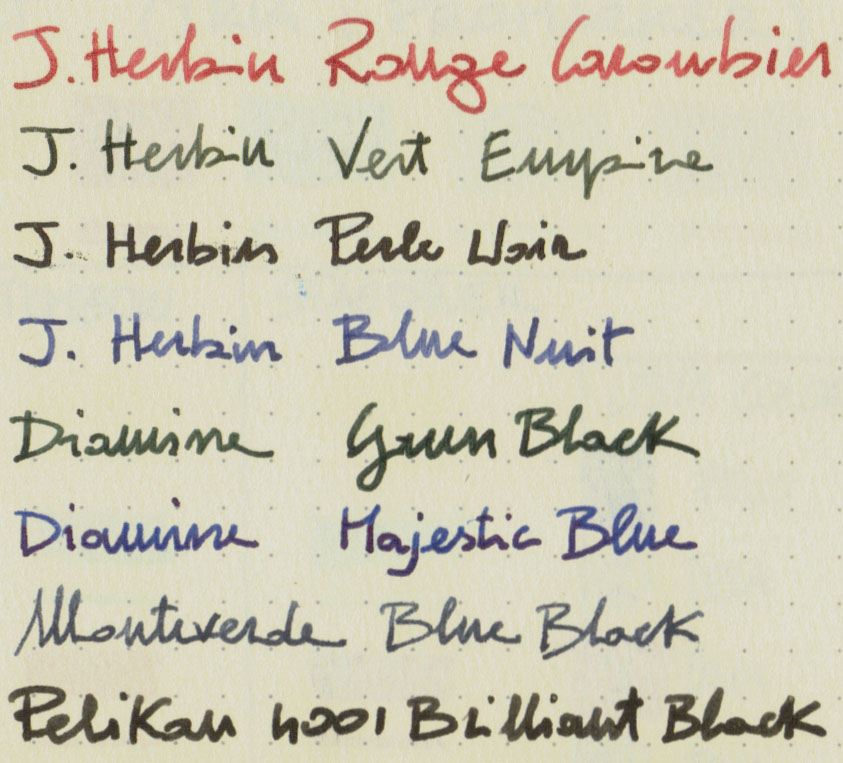 J. Herbin Rouge Caroubier
J. Herbin Vert Empire
J. Herbin Perle Noir
J. Herbin Blue Nuit
Diamine Green Black
Diamine Majestic Blue
Monteverde Blue Black
Pelikan 4001 Brilliant Black